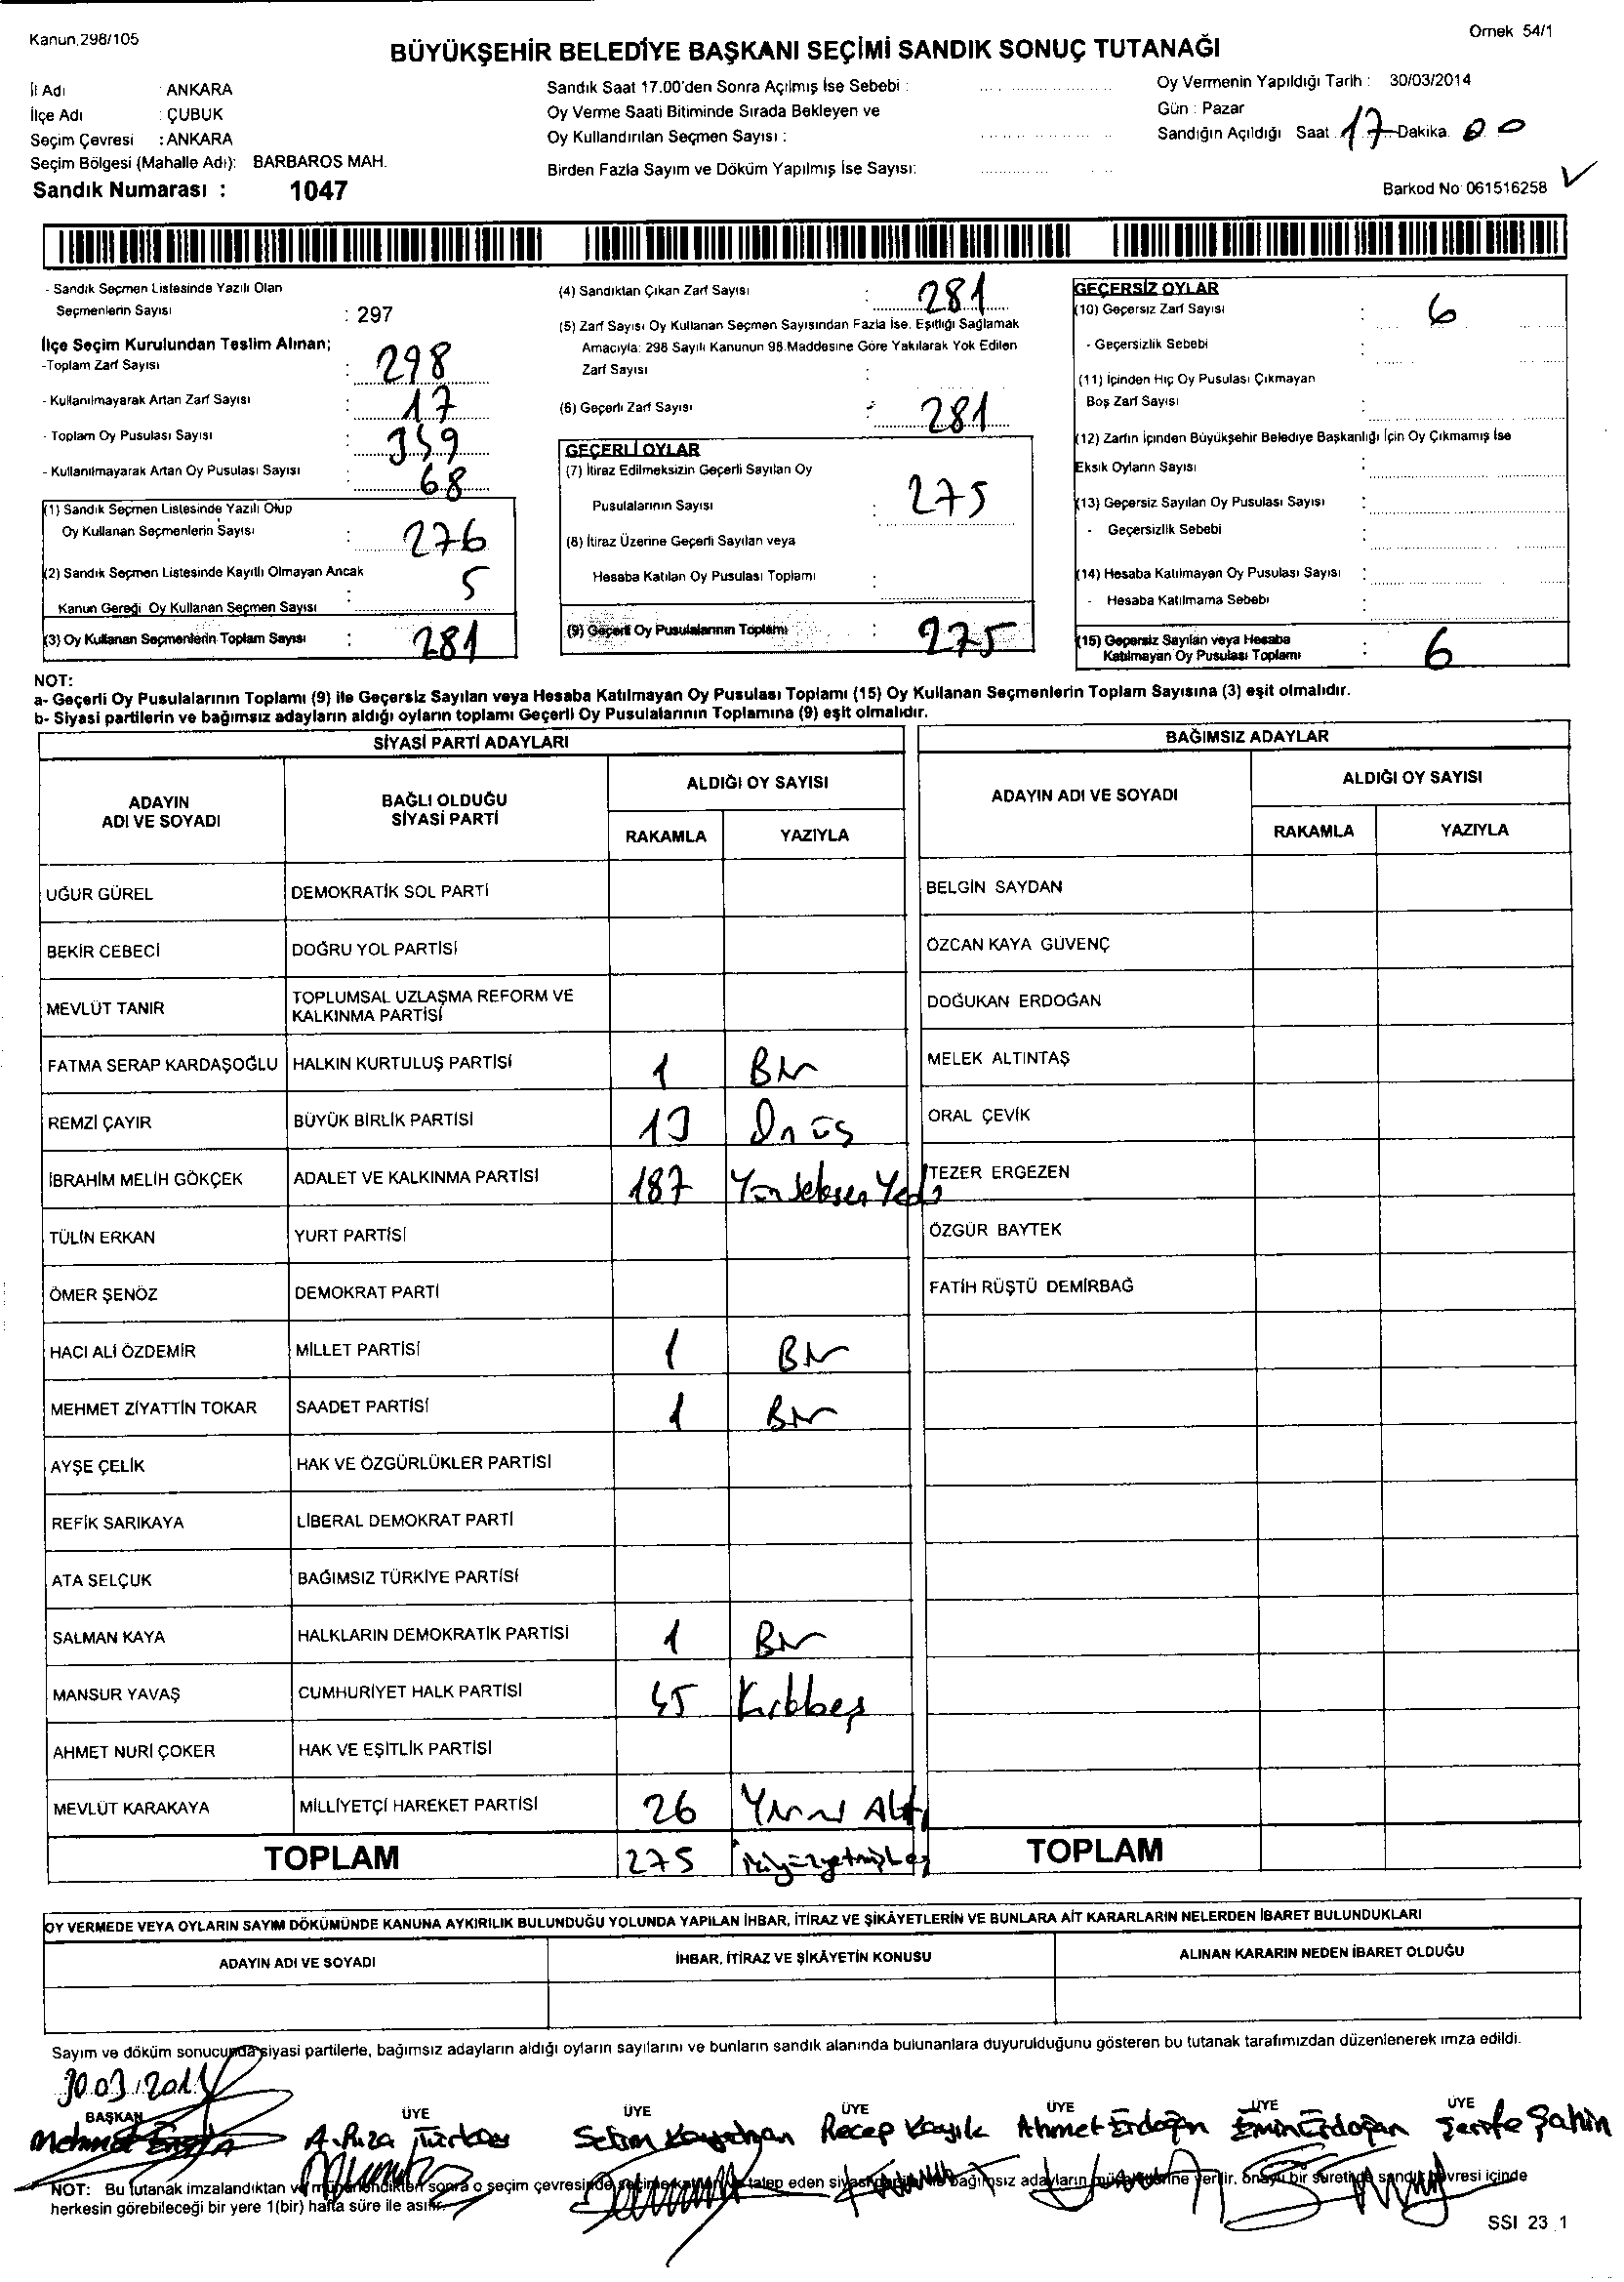 Kanun.298/105
Örnek 54/1
BÜYÜKŞEHİR BELEDİYE BAŞKANI SEÇİMİ SANDIK SONUÇ TUTANAĞI
İl Adı : ANKARA
İlçe Adı : ÇUBUK
Seçim Çevresi : ANKARA
Seçim Bölgesi (Mahalle Adı): BARBAROS MAH.
Sandık Numarası : 1047
Sandık Saat 17.00'den Sonra Açılmış İse Sebebi :
Oy Verme Saati Bitiminde Sırada Bekleyen ve
Oy Kullandırılan Seçmen Sayısı :
Birden Fazla Sayım ve Döküm Yapılmış İse Sayısı:
Oy Vermenin Yapıldığı Tarih : 30/03/2014
Gün : Pazar
Sandığın Açıldığı Saat 17 Dakika 00
Barkod No 061516258
- Sandık Seçmen Listesinde Yazılı Olan
Seçmenlerin Sayısı : 297
İlçe Seçim Kurulundan Teslim Alınan;
-Toplam Zarf Sayısı : 298
- Kullanılmayarak Artan Zarf Sayısı : 17
- Toplam Oy Pusulası Sayısı : 359
- Kullanılmayarak Artan Oy Pusulası Sayısı : 68
(1) Sandık Seçmen Listesinde Yazılı Olup
Oy Kullanan Seçmenlerin Sayısı : 276
(2) Sandık Seçmen Listesinde Kayıtlı Olmayan Ancak
Kanun Gereği Oy Kullanan Seçmen Sayısı : 5
(3) Oy Kullanan Seçmenlerin Toplam Sayısı : 281
(4) Sandıktan Çıkan Zarf Sayısı : 281
(5) Zarf Sayısı Oy Kullanan Seçmen Sayısından Fazla İse, Eşitliği Sağlamak
Amacıyla: 298 Sayılı Kanunun 98.Maddesine Göre Yakılarak Yok Edilen
Zarf Sayısı :
(6) Geçerli Zarf Sayısı : 281
GEÇERLİ OYLAR
(7) İtiraz Edilmeksizin Geçerli Sayılan Oy
Pusulalarının Sayısı : 275
(8) İtiraz Üzerine Geçerli Sayılan veya
Hesaba Katılan Oy Pusulası Toplamı :
(9) Geçerli Oy Pusulalarının Toplamı : 275
GEÇERSİZ OYLAR
(10) Geçersiz Zarf Sayısı : 6
- Geçersizlik Sebebi :
(11) İçinden Hiç Oy Pusulası Çıkmayan
Boş Zarf Sayısı :
(12) Zarfın İçinden Büyükşehir Belediye Başkanlığı İçin Oy Çıkmamış İse
Eksik Oyların Sayısı :
(13) Geçersiz Sayılan Oy Pusulası Sayısı :
- Geçersizlik Sebebi :
(14) Hesaba Katılmayan Oy Pusulası Sayısı :
- Hesaba Katılmama Sebebi :
(15) Geçersiz Sayılan veya Hesaba
Katılmayan Oy Pusulası Toplamı : 6
NOT:
a- Geçerli Oy Pusulalarının Toplamı (9) ile Geçersiz Sayılan veya Hesaba Katılmayan Oy Pusulası Toplamı (15) Oy Kullanan Seçmenlerin Toplam Sayısına (3) eşit olmalıdır.
b- Siyasi partilerin ve bağımsız adayların aldığı oyların toplamı Geçerli Oy Pusulalarının Toplamına (9) eşit olmalıdır.
SİYASİ PARTİ ADAYLARI
ADAYIN
ADI VE SOYADI
BAĞLI OLDUĞU
SİYASİ PARTİ
ALDIĞI OY SAYISI
RAKAMLA YAZIYLA
UĞUR GÜREL DEMOKRATİK SOL PARTİ
BEKİR CEBECİ DOĞRU YOL PARTİSİ
MEVLÜT TANIR TOPLUMSAL UZLAŞMA REFORM VE
KALKINMA PARTİSİ
FATMA SERAP KARDAŞOĞLU HALKIN KURTULUŞ PARTİSİ 1 Bir
REMZİ ÇAYIR BÜYÜK BİRLİK PARTİSİ 13 Onüç
İBRAHİM MELİH GÖKÇEK ADALET VE KALKINMA PARTİSİ 187 Yüzseksen Yedi
TÜLİN ERKAN YURT PARTİSİ
ÖMER ŞENÖZ DEMOKRAT PARTİ
HACI ALİ ÖZDEMİR MİLLET PARTİSİ 1 Bir
MEHMET ZİYATTİN TOKAR SAADET PARTİSİ 1 Bir
AYŞE ÇELİK HAK VE ÖZGÜRLÜKLER PARTİSİ
REFİK SARIKAYA LİBERAL DEMOKRAT PARTİ
ATA SELÇUK BAĞIMSIZ TÜRKİYE PARTİSİ
SALMAN KAYA HALKLARIN DEMOKRATİK PARTİSİ 1 Bir
MANSUR YAVAŞ CUMHURİYET HALK PARTİSİ 45 Kırkbeş
AHMET NURİ ÇOKER HAK VE EŞİTLİK PARTİSİ
MEVLÜT KARAKAYA MİLLİYETÇİ HAREKET PARTİSİ 26 Yirmi Altı
TOPLAM 275 ikiyüzyetmişbeş
BAĞIMSIZ ADAYLAR
ADAYIN ADI VE SOYADI
ALDIĞI OY SAYISI
RAKAMLA YAZIYLA
BELGİN SAYDAN
ÖZCAN KAYA GÜVENÇ
DOĞUKAN ERDOĞAN
MELEK ALTINTAŞ
ORAL ÇEVİK
TEZER ERGEZEN
ÖZGÜR BAYTEK
FATİH RÜŞTÜ DEMİRBAĞ
TOPLAM
OY VERMEDE VEYA OYLARIN SAYIM DÖKÜMÜNDE KANUNA AYKIRILIK BULUNDUĞU YOLUNDA YAPILAN İHBAR, İTİRAZ VE ŞİKÂYETLERİN VE BUNLARA AİT KARARLARIN NELERDEN İBARET BULUNDUKLARI
ADAYIN ADI VE SOYADI
İHBAR, İTİRAZ VE ŞİKÂYETİN KONUSU
ALINAN KARARIN NEDEN İBARET OLDUĞU
Sayım ve döküm sonucunda siyasi partilerle, bağımsız adayların aldığı oyların sayılarını ve bunların sandık alanında bulunanlara duyurulduğunu gösteren bu tutanak tarafımızdan düzenlenerek imza edildi.
30.03.2014
BAŞKAN ÜYE ÜYE ÜYE ÜYE ÜYE ÜYE
Mehmet A.Rıza Türkay Selim Recep Kayık Ahmet Erdoğan Emin Erdoğan Şerife Şahin
NOT: Bu tutanak imzalandıktan ve mühürlendikten sonra o seçim çevresinde seçime katılan ve talep eden siyasi bağımsız adayların müşahitlerine verilir. Onaylı bir suretinde sandık çevresi içinde
herkesin görebileceği bir yere 1(bir) hafta süre ile asılır.
SSI 23_1